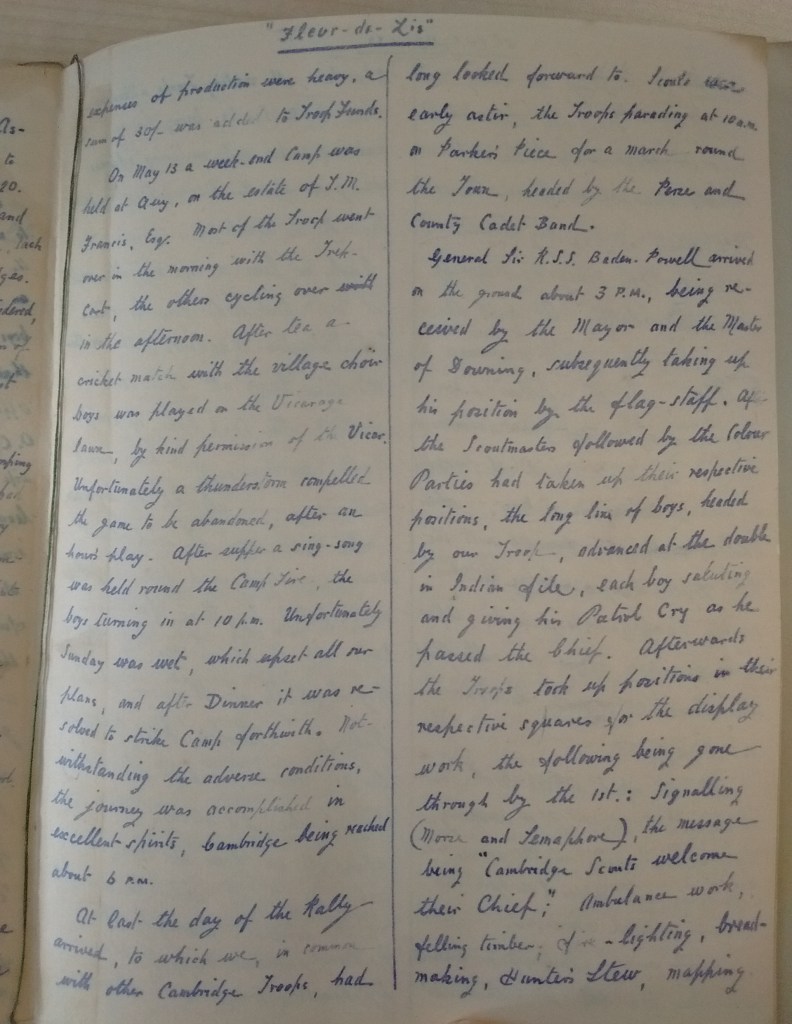 "Fleur-de-Lis"
expenses of production were heavy, a
sum of 30/- was added to Troop Funds.
On May 13 a week-end Camp was
held at Quy, on the estate of T.M.
Francis, Esq. Most of the Troop went
over in the morning with the Trek-
Cart, the others cycling over
in the afternoon. After tea a
cricket match with the village choir
boys was played on the Vicarage
lawn, by kind permission of the Vicar.
Unfortunately a thunderstorm compelled
the game to be abandoned, after an
hour's play. After supper a sing-song
was held round the Camp Fire, the
boys turning in at 10 p.m. Unfortunately
Sunday was wet, which upset all our
plans, and after Dinner it was re-
solved to strike Camp forthwith. Not-
withstanding the adverse conditions,
the journey was accomplished in
excellent spirits, Cambridge being reached
about 6 P.M.
At last the day of the Rally
arrived, to which we, in common
with other Cambridge Troops, had
long looked forward to. Scouts were
early astir, the Troops parading at 10 a.m.
on Parker's Piece for a march round
the Town, headed by the Perse and
County Cadet Band.
General Sir R.S.S. Baden-Powell arrived
on the ground about 3 P.M., being re-
ceived by the Mayor and the Master
of Downing, subsequently taking up
his position by the flag-staff.
the Scoutmasters followed by the Colour
Parties had taken up their respective
positions, the long line of boys, headed
by our Troop, advanced at the double
in Indian file, each boy saluting
and giving his Patrol Cry as he
passed the Chief. Afterwards
the Troops took up positions in their
respective squares for the display
work, the following being gone
through by the 1st.: Signalling
(Morse and Semaphore), the message
being "Cambridge Scouts welcome
their Chief;" Ambulance work,
felling timber, fire-lighting, bread-
making, Hunter's Stew, mapping